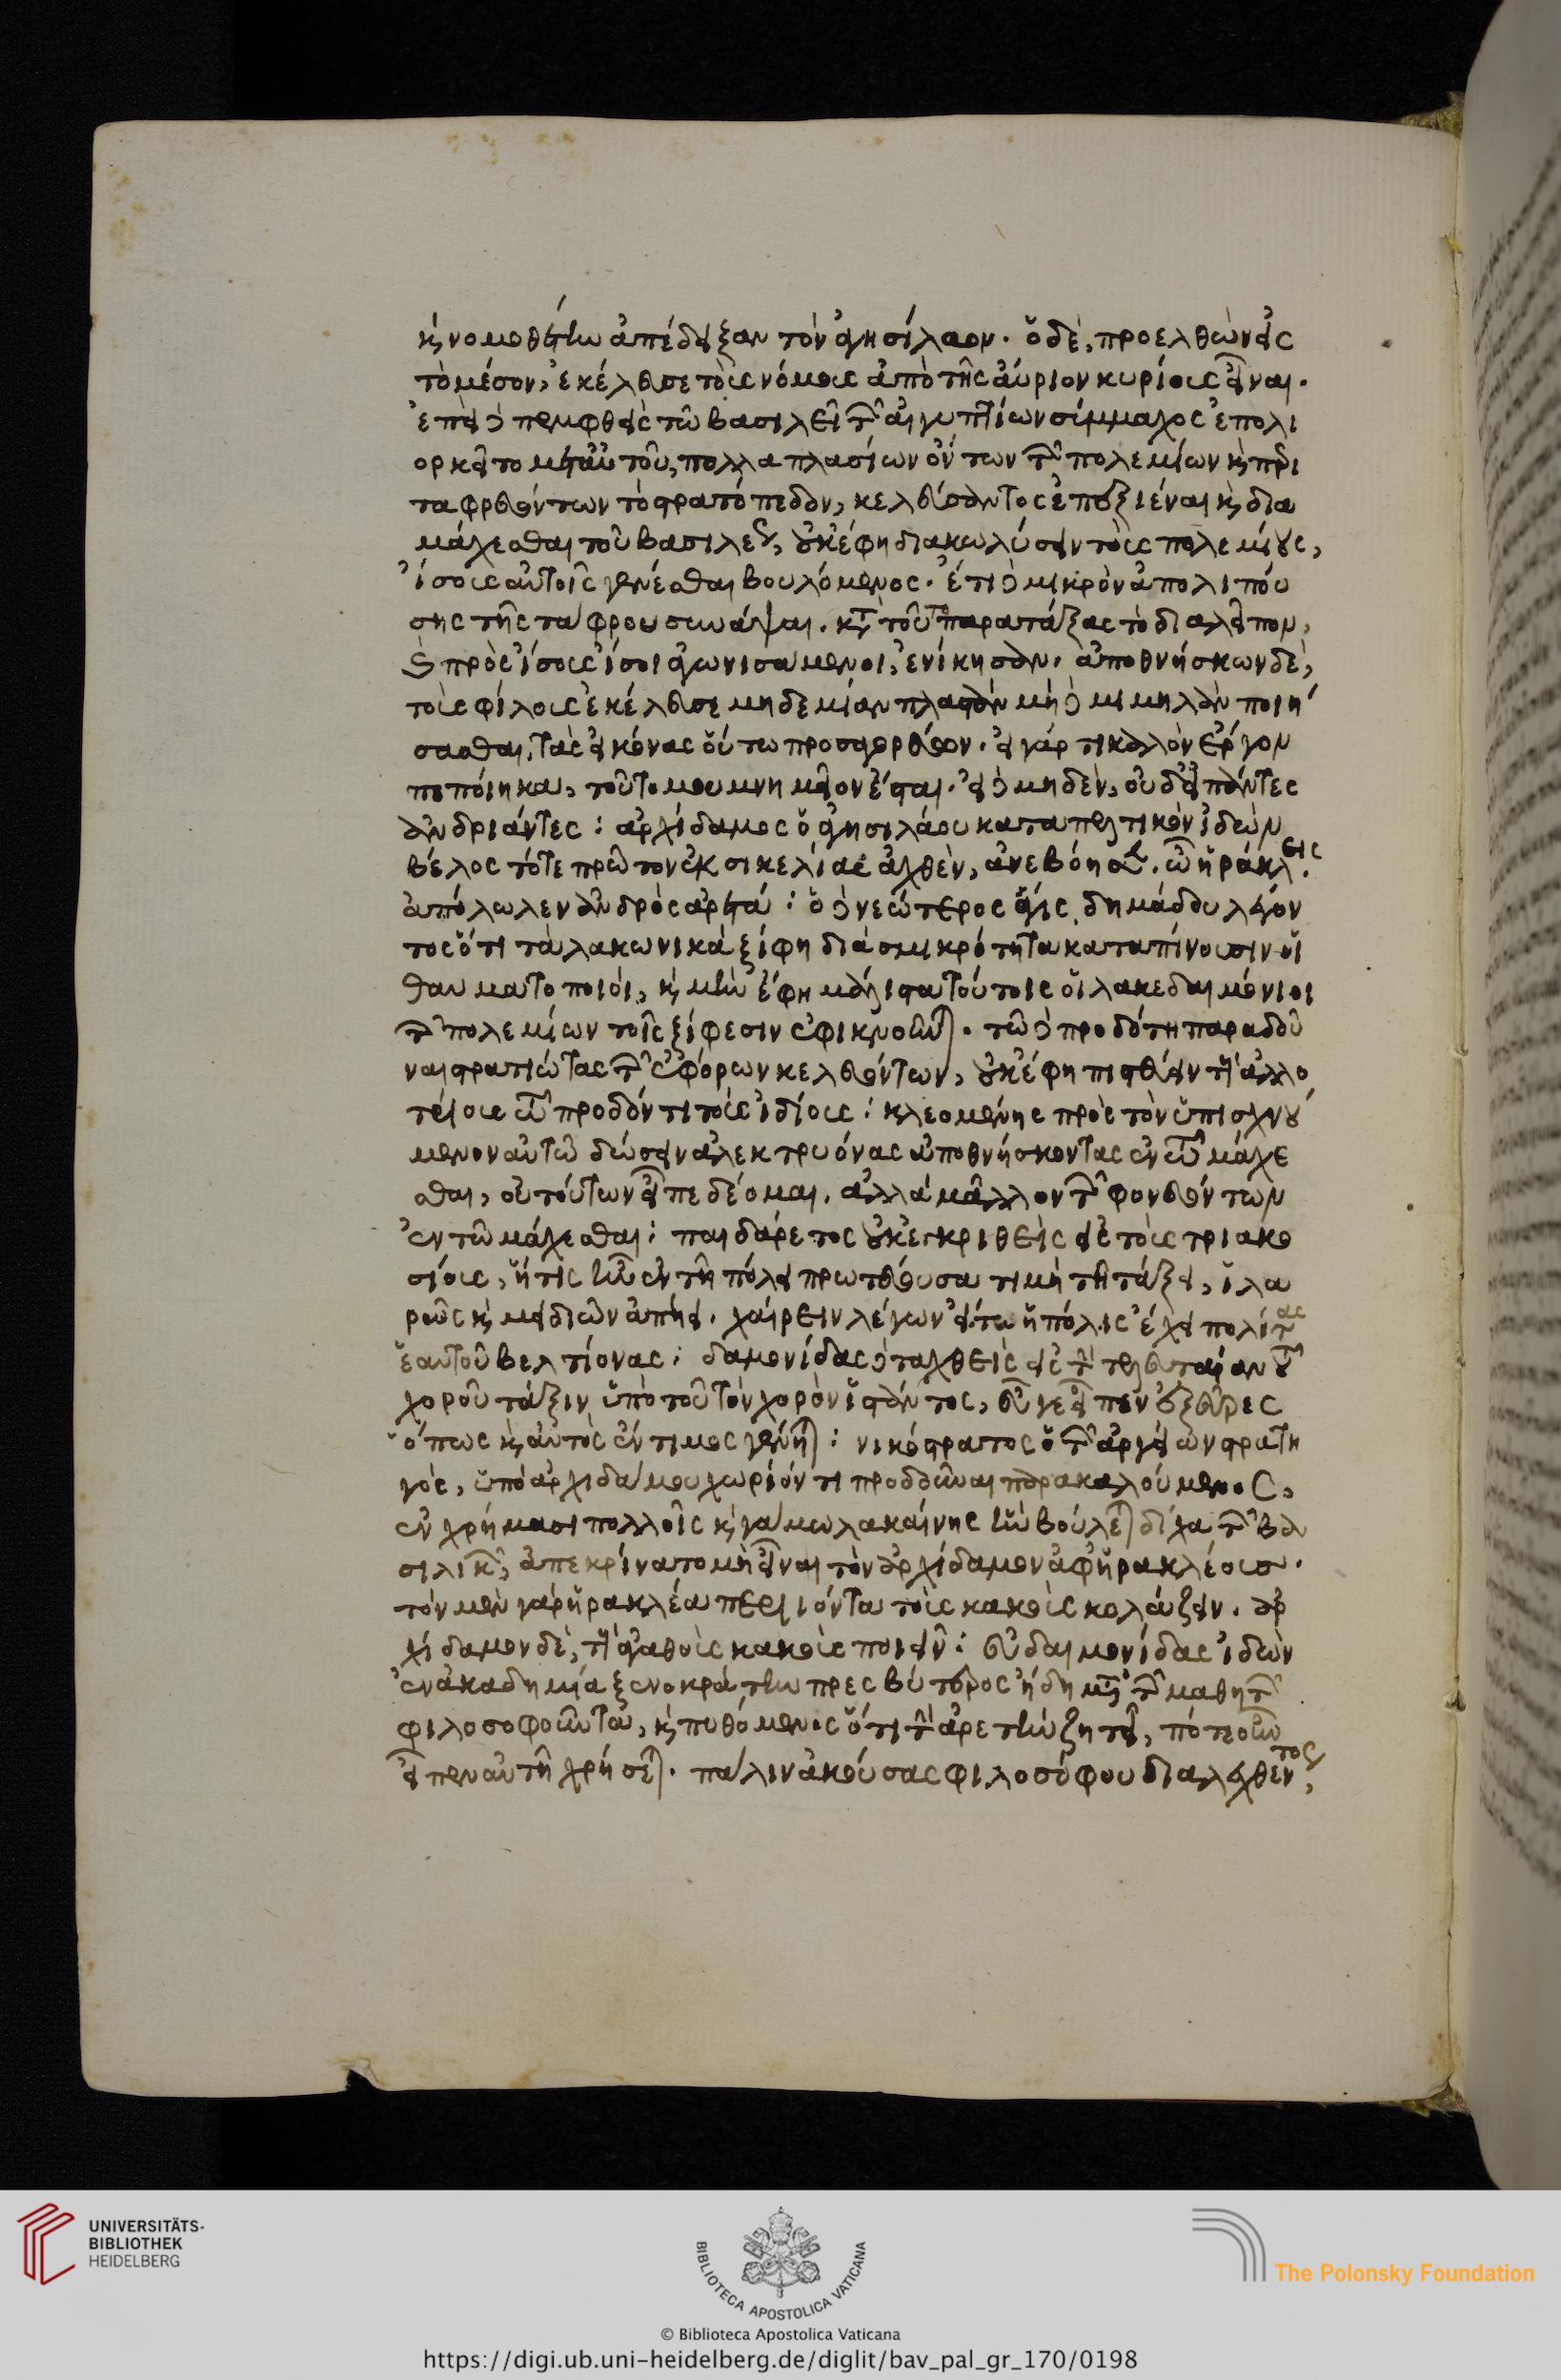 κ νομοθέτην ἀπέδειξαν τὸν ἀγησίλαον. ὁ δὲ, προελθὼν εἰς
τὸ μέσον, ἐκέλευσε τοὺς νόμους ἀπὸ τῆς αὔριον κυρίους εἶναι.
ἐπεὶ δὲ πεμφθεὶς τῶ βασιλεῖ τῶν αἰγυπτίων σύμμαχος ἐπολι
ορκεῖτο μετ' αὐτοῦ, πολλαπλασίων ὄντων τῶν πολεμίων κ περι
ταφρευόντων τὸ στρατόπεδον, κελεύσαντος ἐπεξιέναι κ δια
μάχεσθαι τοῦ βασιλέως, οὐκ ἔφη διακωλύσειν τοὺς πολεμίους,
ἴσους αὐτοῖς γενέσθαι βουλόμενος. ἔτι δὲ μικρὸν ἀπολιπού
σης τῆς τάφρου συνάψαι. κατὰ τοῦτο παρατάξας τὸ διαλεῖπον,
κ πρὸς ἴσους ἴσοι ἀγωνισάμενοι, ἐνίκησαν. ἀποθνήσκων δὲ,
τοὺς φίλους ἐκέλευσε μηδεμίαν πλαστὰν μὴ δὲ μιμηλὰν ποιή
σασθαι, τὰς εἰκόνας οὕτω προσαγορεύσων. εἰ γάρ τι καλὸν ἔργον
πεποίηκα, τοῦτο μου μνημεῖον ἔσται. εἰ δὲ μηδὲν, οὐδ' εἰ πάντες
ἀνδριάντες: ἀρχίδαμος ὁ ἀγησιλάου καταπελτικὸν ἰδὼν
βέλος τότε πρῶτον ἐκ σικελίας ἀχθὲν, ἀνεβόησεν. ὦ ἡράκλεις.
ἀπόλωλεν ἀνδρὸς ἀρετά: ὁ δὲ νεώτερος ἆγις, δημάδου λέγον
τος ὅτι τὰ λακωνικὰ ξίφη διὰ σμικρότητα καταπίνουσιν οἱ
θαυματοποιοὶ, κ μὴν ἔφη μάλιστα τούτοις οἱ λακεδαιμόνιοι
τῶν πολεμίων τοῖς ξίφεσιν ἐφικνοῦνται. τῶ δὲ προδότη παραδοῦ
ναι στρατιώτας τῶν ἐφόρων κελευόντων, οὐκ ἔφη πιστεύειν τοὺς ἀλλο
τρίους τῶ προδόντι τοὺς ἰδίους: κλεομένης πρὸς τὸν ὑπισχνού
μενον αὐτῶ δώσειν ἀλεκτρυόνας ἀποθνήσκοντας ἐν τῶ μάχε
σθαι, οὐ τούτων εἶπε δέομαι. ἀλλὰ μᾶλλον τῶν φονευόντων
ἐν τῶ μάχεσθαι: παιδάρετος οὐκ ἐγκριθεὶς εἰς τοὺς τριακο
σίους, ἥτις ἦν ἐν τῆ πόλει πρωτεύουσα τιμὴ τῆ τάξει, ἱλα
ρῶς κ μειδιῶν ἀπήει. χαίρειν λέγων εἴτω ἡ πόλις ἔχει πολίτας
ἑαυτοῦ βελτίονας: δαμονίδας δὲ ταχθεὶς εἰς τὴν τελευταίαν τοῦ
χοροῦ τάξιν ὑπὸ τοῦ τὸν χορὸν ἱστάντος, εὖ γε εἶπεν ἐξεῦρες
ὅπως κ αὐτὸς ἔντιμος γένηται: νικόστρατος ὁ τῶν ἀργείων στρατη
γὸς, ὑπὸ ἀρχιδάμου χωρίόν τι προδοῦναι παρακαλούμενος,
ἐν χρήμασι πολλοῖς κ γάμω λακαίνης ἣν βούλεται δίχα τῶν βα
σιλικῶν, ἀπεκρίνατο μὴ εἶναι τὸν ἀρχίδαμον ἀφ' ἡρακλέους.
τὸν μὲν γὰρ ἡρακλέα περιιόντα τοὺς κακοὺς κολάζειν. ἀρ
χίδαμον δὲ, τοὺς ἀγαθοὺς κακοὺς ποιεῖν: εὐδαιμονίδας ἰδὼν
ἐν ἀκαδημία ξενοκράτην πρεσβύτερος ἤδη μετὰ τῶν μαθητῶν
φιλοσοφοῦντα, κ πυθόμενος ὅτι τὴν ἀρετὴν ζητεῖ, πότε οὖν
εἶπεν αὐτῆ χρήσεται. πάλιν ἀκούσας φιλοσόφου διαλεχθέντος,
UNIVERSITÄTS-
BIBLIOTHEK
HEIDELBERG
BIBLIOTECA APOSTOLICA VATICANA
The Polonsky Foundation
© Biblioteca Apostolica Vaticana
https://digi.ub.uni-heidelberg.de/diglit/bav_pal_gr_170/0198